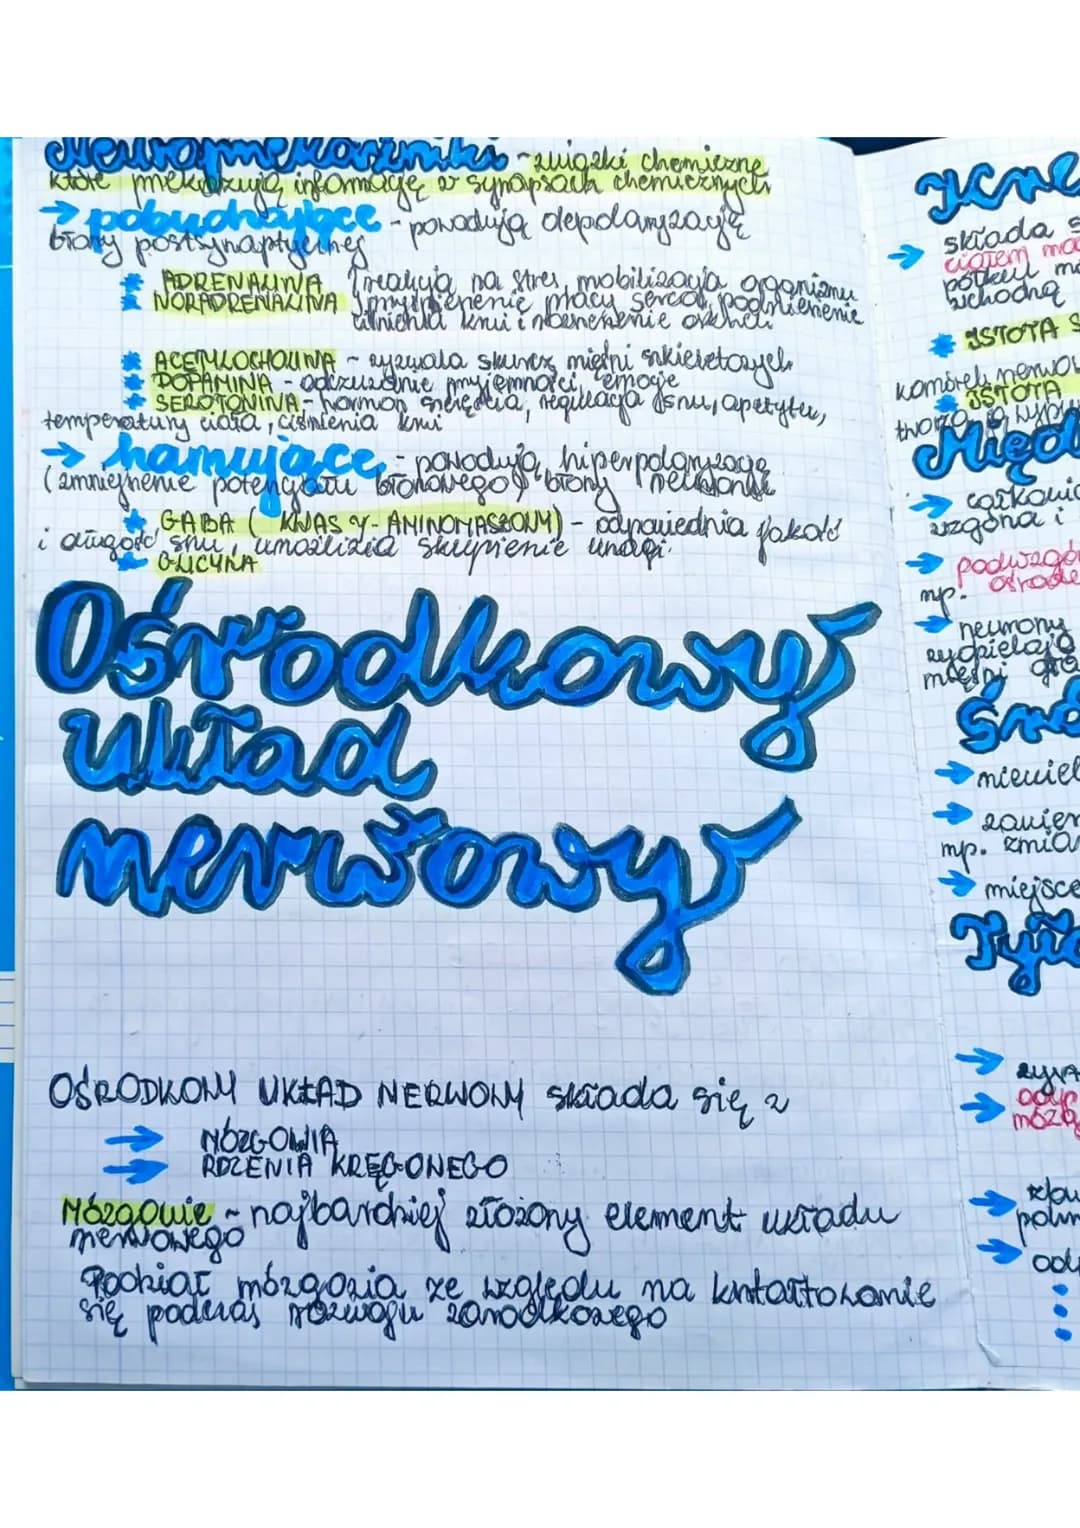 Neuroprzekaźniki - związki chemiczne,
które przekazują informację w synapsach chemicznych
→ pobudzające - powodują depolaryzację
błony postsynaptycznej
* ADRENALINA } reakcja na stres, mobilizacja organizmu
* NORADRENALINA } przyspieszenie pracy serca, podniesienie
ciśnienia krwi i
* ACETYLOCHOLINA - wyzwala skurcz mięśni szkieletowych
* DOPAMINA - odczuwanie przyjemności, emocje
* SEROTONINA - hormon szczęścia, regulacja snu, apetytu,
temperatury ciała, ciśnienia krwi
→ hamujące - powodują hiperpolaryzację
(zmniejszenie potencjału błonowego) błony neuronu
* GABA ( KWAS γ- AMINOMASŁOWY) - odpowiednia jakość
i długość snu, umożliwia skupienie uwagi
* GLICYNA
Ośrodkowy
układ
nerwowy
OŚRODKOWY UKŁAD NERWOWY składa się z
→ MÓZGOWIA
→ RDZENIA KRĘGOWEGO
Mózgowie - najbardziej złożony element układu
nerwowego
Podział mózgowia ze względu na kształtowanie
się podczas rozwoju zarodkowego
→ składa
ciałem
półkul
wchodną
* ISTOTA
komórek
* ISTOTA
tworzą
Międ
→
wzgórza i
→ podwzgó
np.
→ neurony
wydzielają
mięśni
Śró
→ niewiel
→ zawier
np. zmia
→ miejsce
Tyło
→
→
mózg
→
→